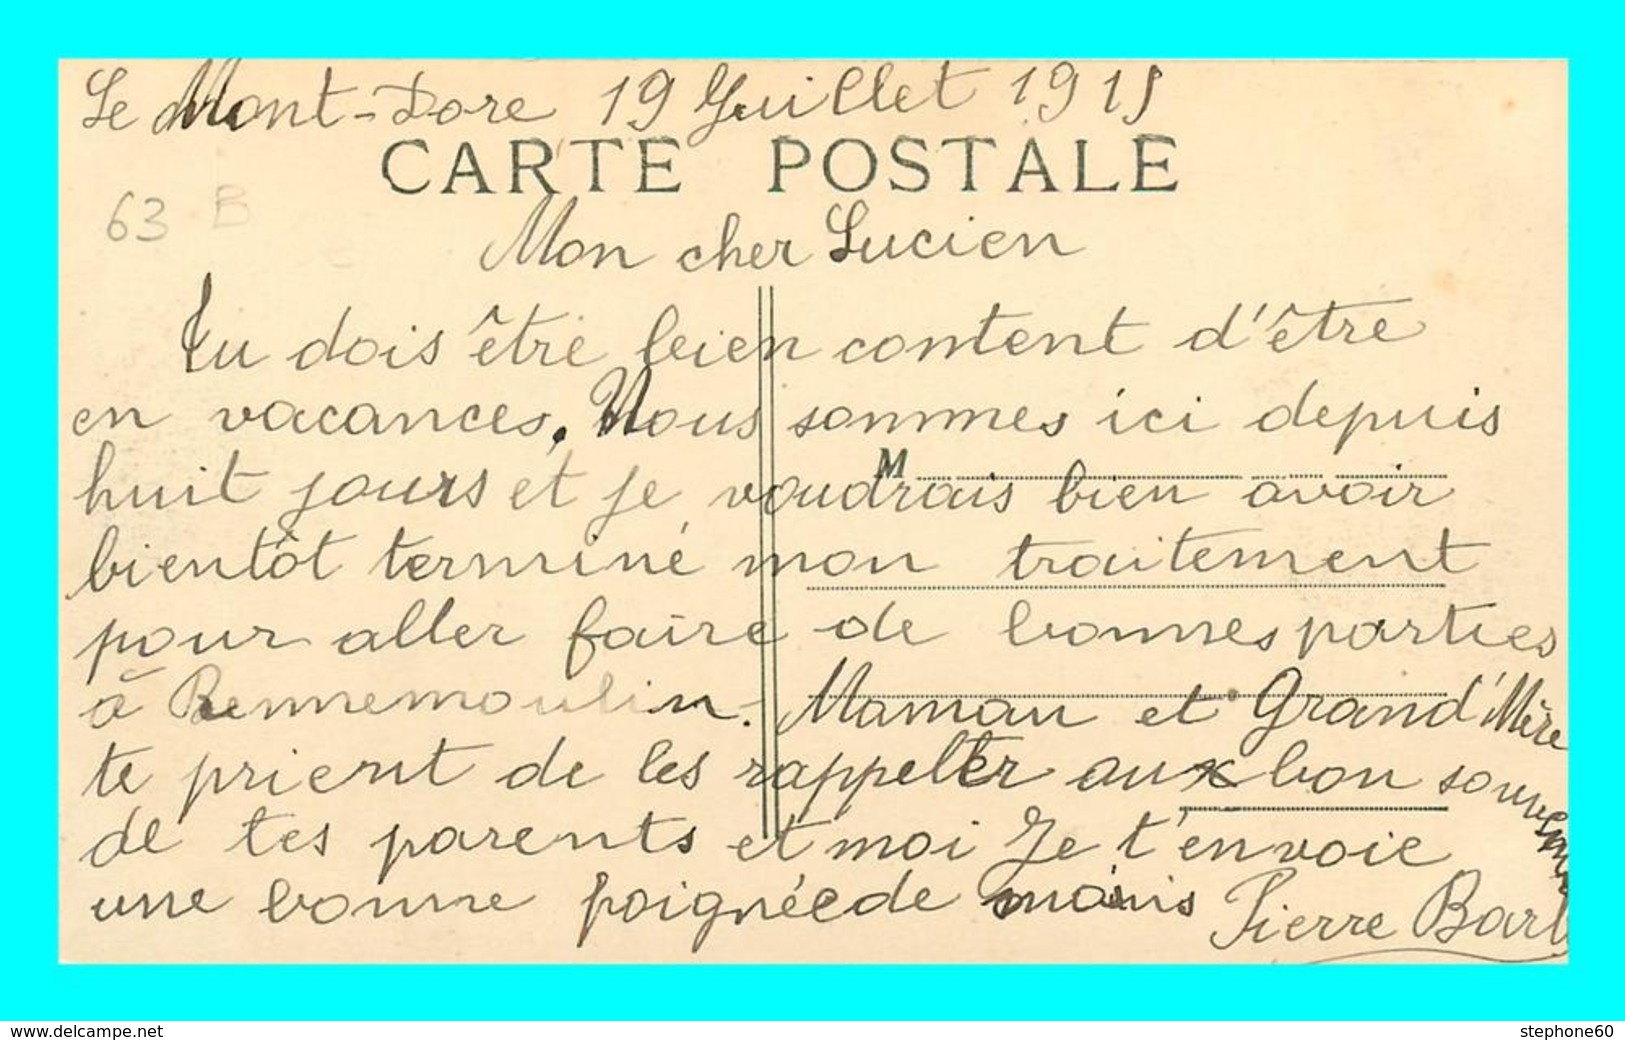 Le Mont-Dore 19 Juillet 1915
CARTE POSTALE
63 B
Mon cher Lucien
Tu dois être bien content d'être
en vacances. Nous sommes ici depuis
M
huit jours et je voudrais bien avoir
bientôt terminé mon traitement
pour aller faire de bonnes parties
à Rennemoulin. Maman et Grand'Mère
te prient de les rappeler au bon souvenir
de tes parents et moi je t'envoie
une bonne poignée de mains Pierre
www.delcampe.net
stephone60